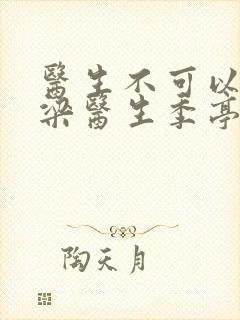 醫生不可以
梁醫生季亭
陶天月